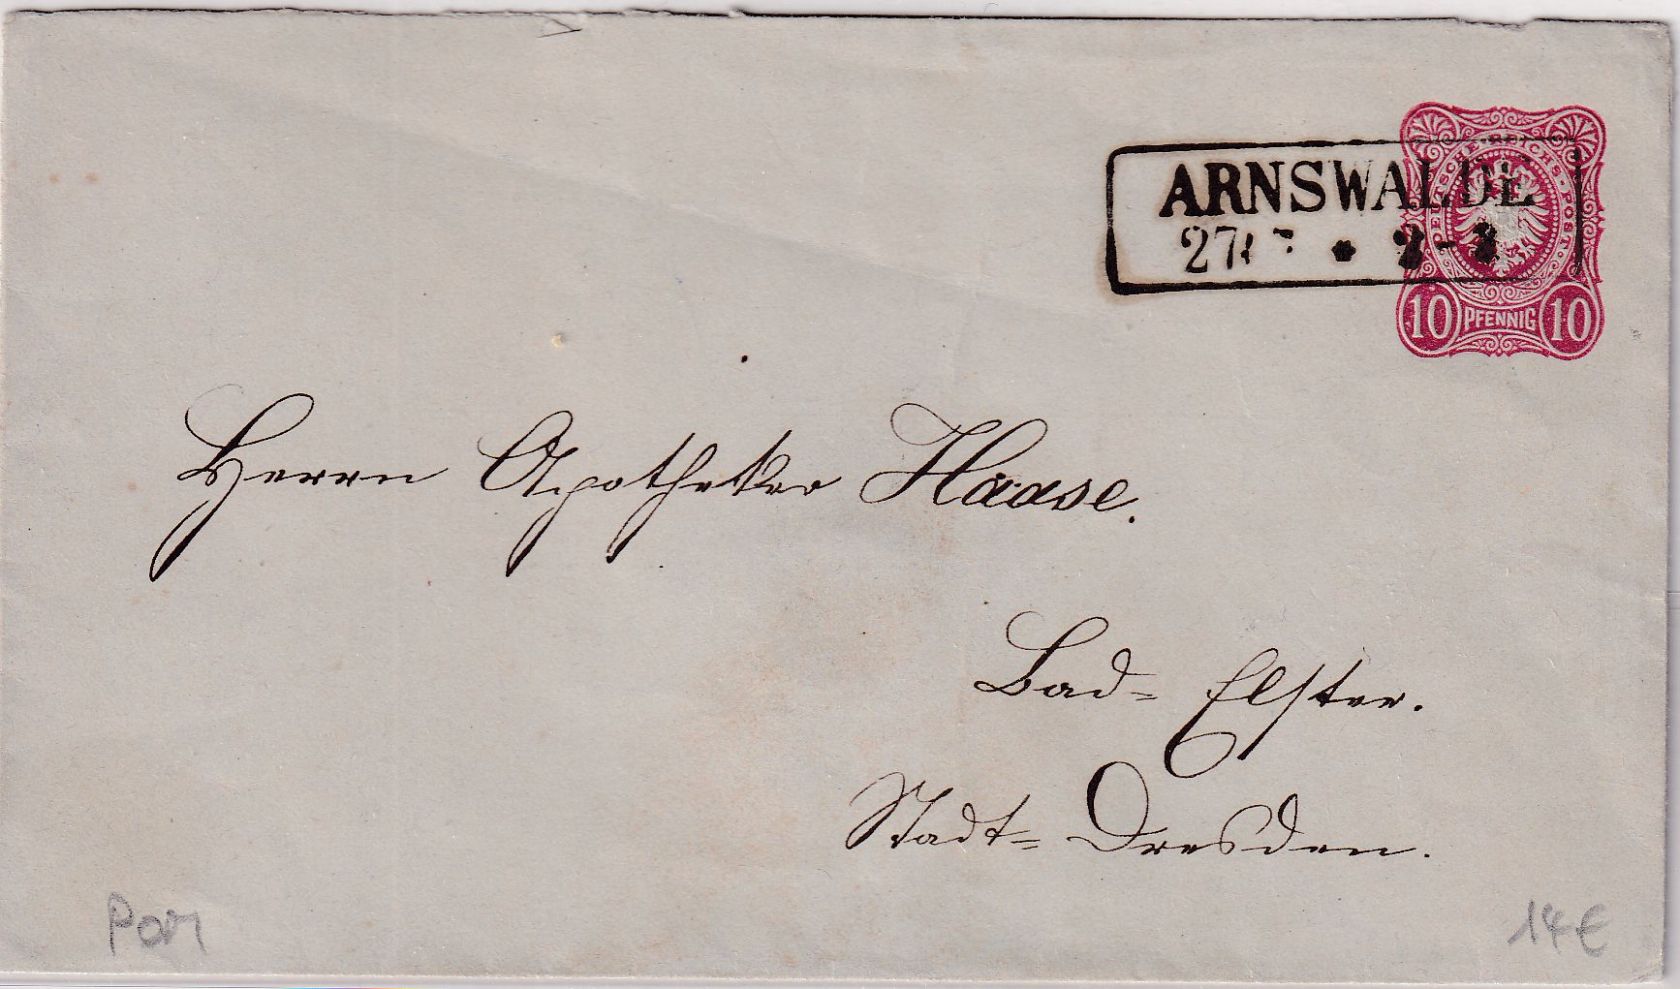 ARNSWALDE
27 * 2-3
DEUTSCHE·REICHS-POST
10 PFENNIG 10
Herrn Apotheker Haase.
Bad= Elster.
Stadt= Dresden.
Pom
14€